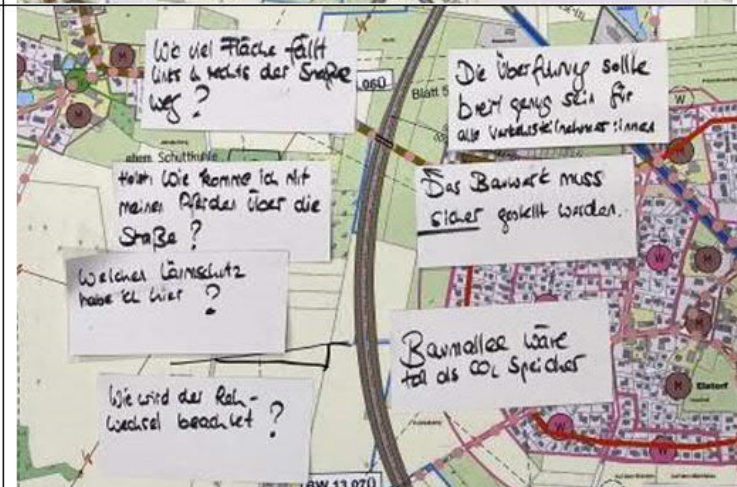 Wie viel Fläche fällt
links & rechts der Straße
weg?
06Ü
Blatt 5
Die Überführung sollte
breit genug sein für
alle Verkehrsteilnehmer:innen
W
M
M
ehem. Schuttkuhle
Wie komme ich mit
meinen Pferden über die
Straße?
Das Bauwerk muss
sicher gestellt werden.
Welchen Lärmschutz
habe ich hier?
Baumallee wäre
toll als CO2 Speicher
Wie wird der Reh-
wechsel beachtet?
M
W
M
M
M
Elstorf
W
W
BW 13.07Ü